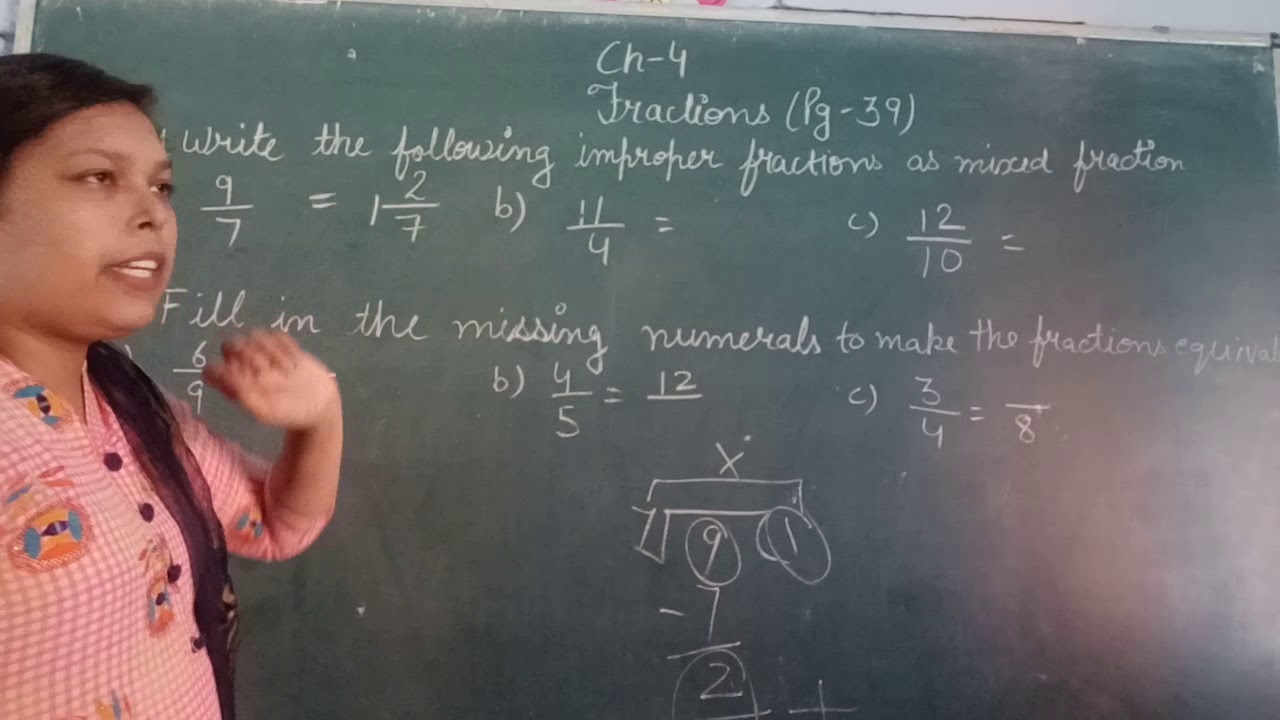 Ch-4
Fractions (Pg-39)
Write the following improper fractions as mixed fraction
9/7 = 1 2/7 b) 11/4 = c) 12/10 =
Fill in the missing numerals to make the fractions equival
6/9 b) 4/5 = 12/ c) 3/4 = /8
X
7 9 1
- 7
2